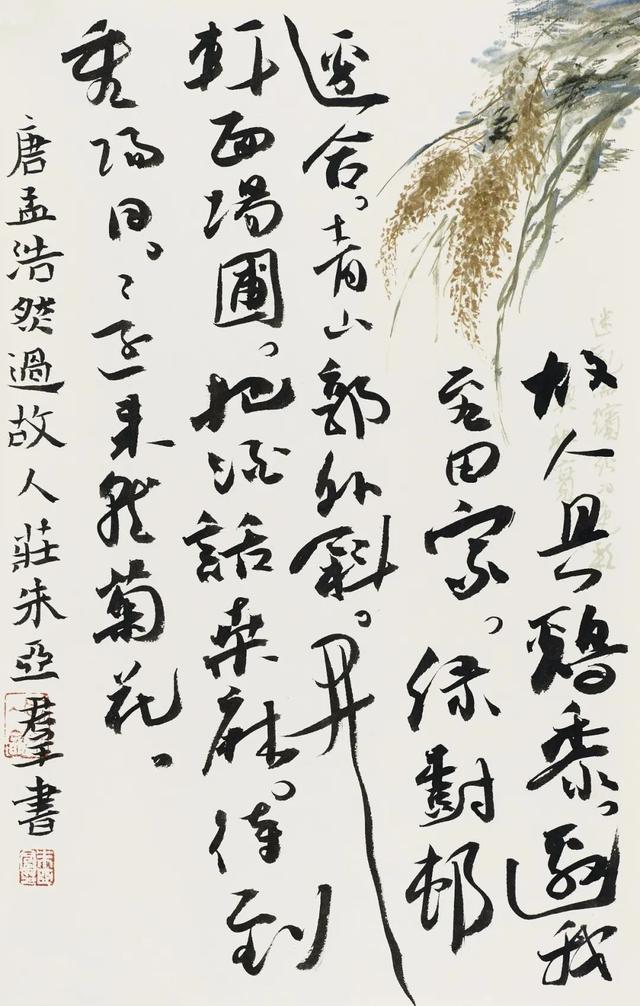 故人具鷄黍。邀我
至田家。綠樹邨
邊合。青山郭外斜。開
軒面場圃。把酒話桑麻。待到
重陽日。還來就菊花。
唐孟浩然過故人莊朱亞羣書